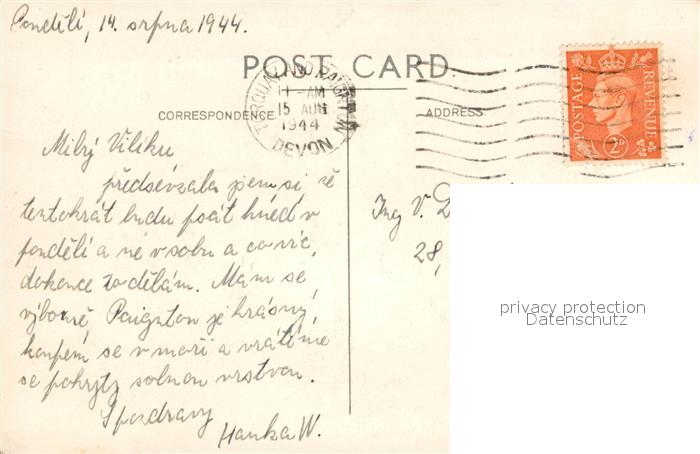 Pondělí, 14. srpna 1944.
POST CARD
TORQUAY AND PAIGNTON
11 - AM
15 AUG
1944
DEVON
POSTAGE
REVENUE
2D
CORRESPONDENCE
ADDRESS.
Milý Vilíku
předsevzala jsem si, že
tentokrát budu psát hned v
pondělí a ne v sobu a co víc,
dokonce to dělám. Mám se
výborně, Paignton je krásný,
koupem se v moři a vrátíme
se pokryty solnou vrstvou.
S pozdravy
Hanka W.
Ing V. D
28,
privacy protection
Datenschutz